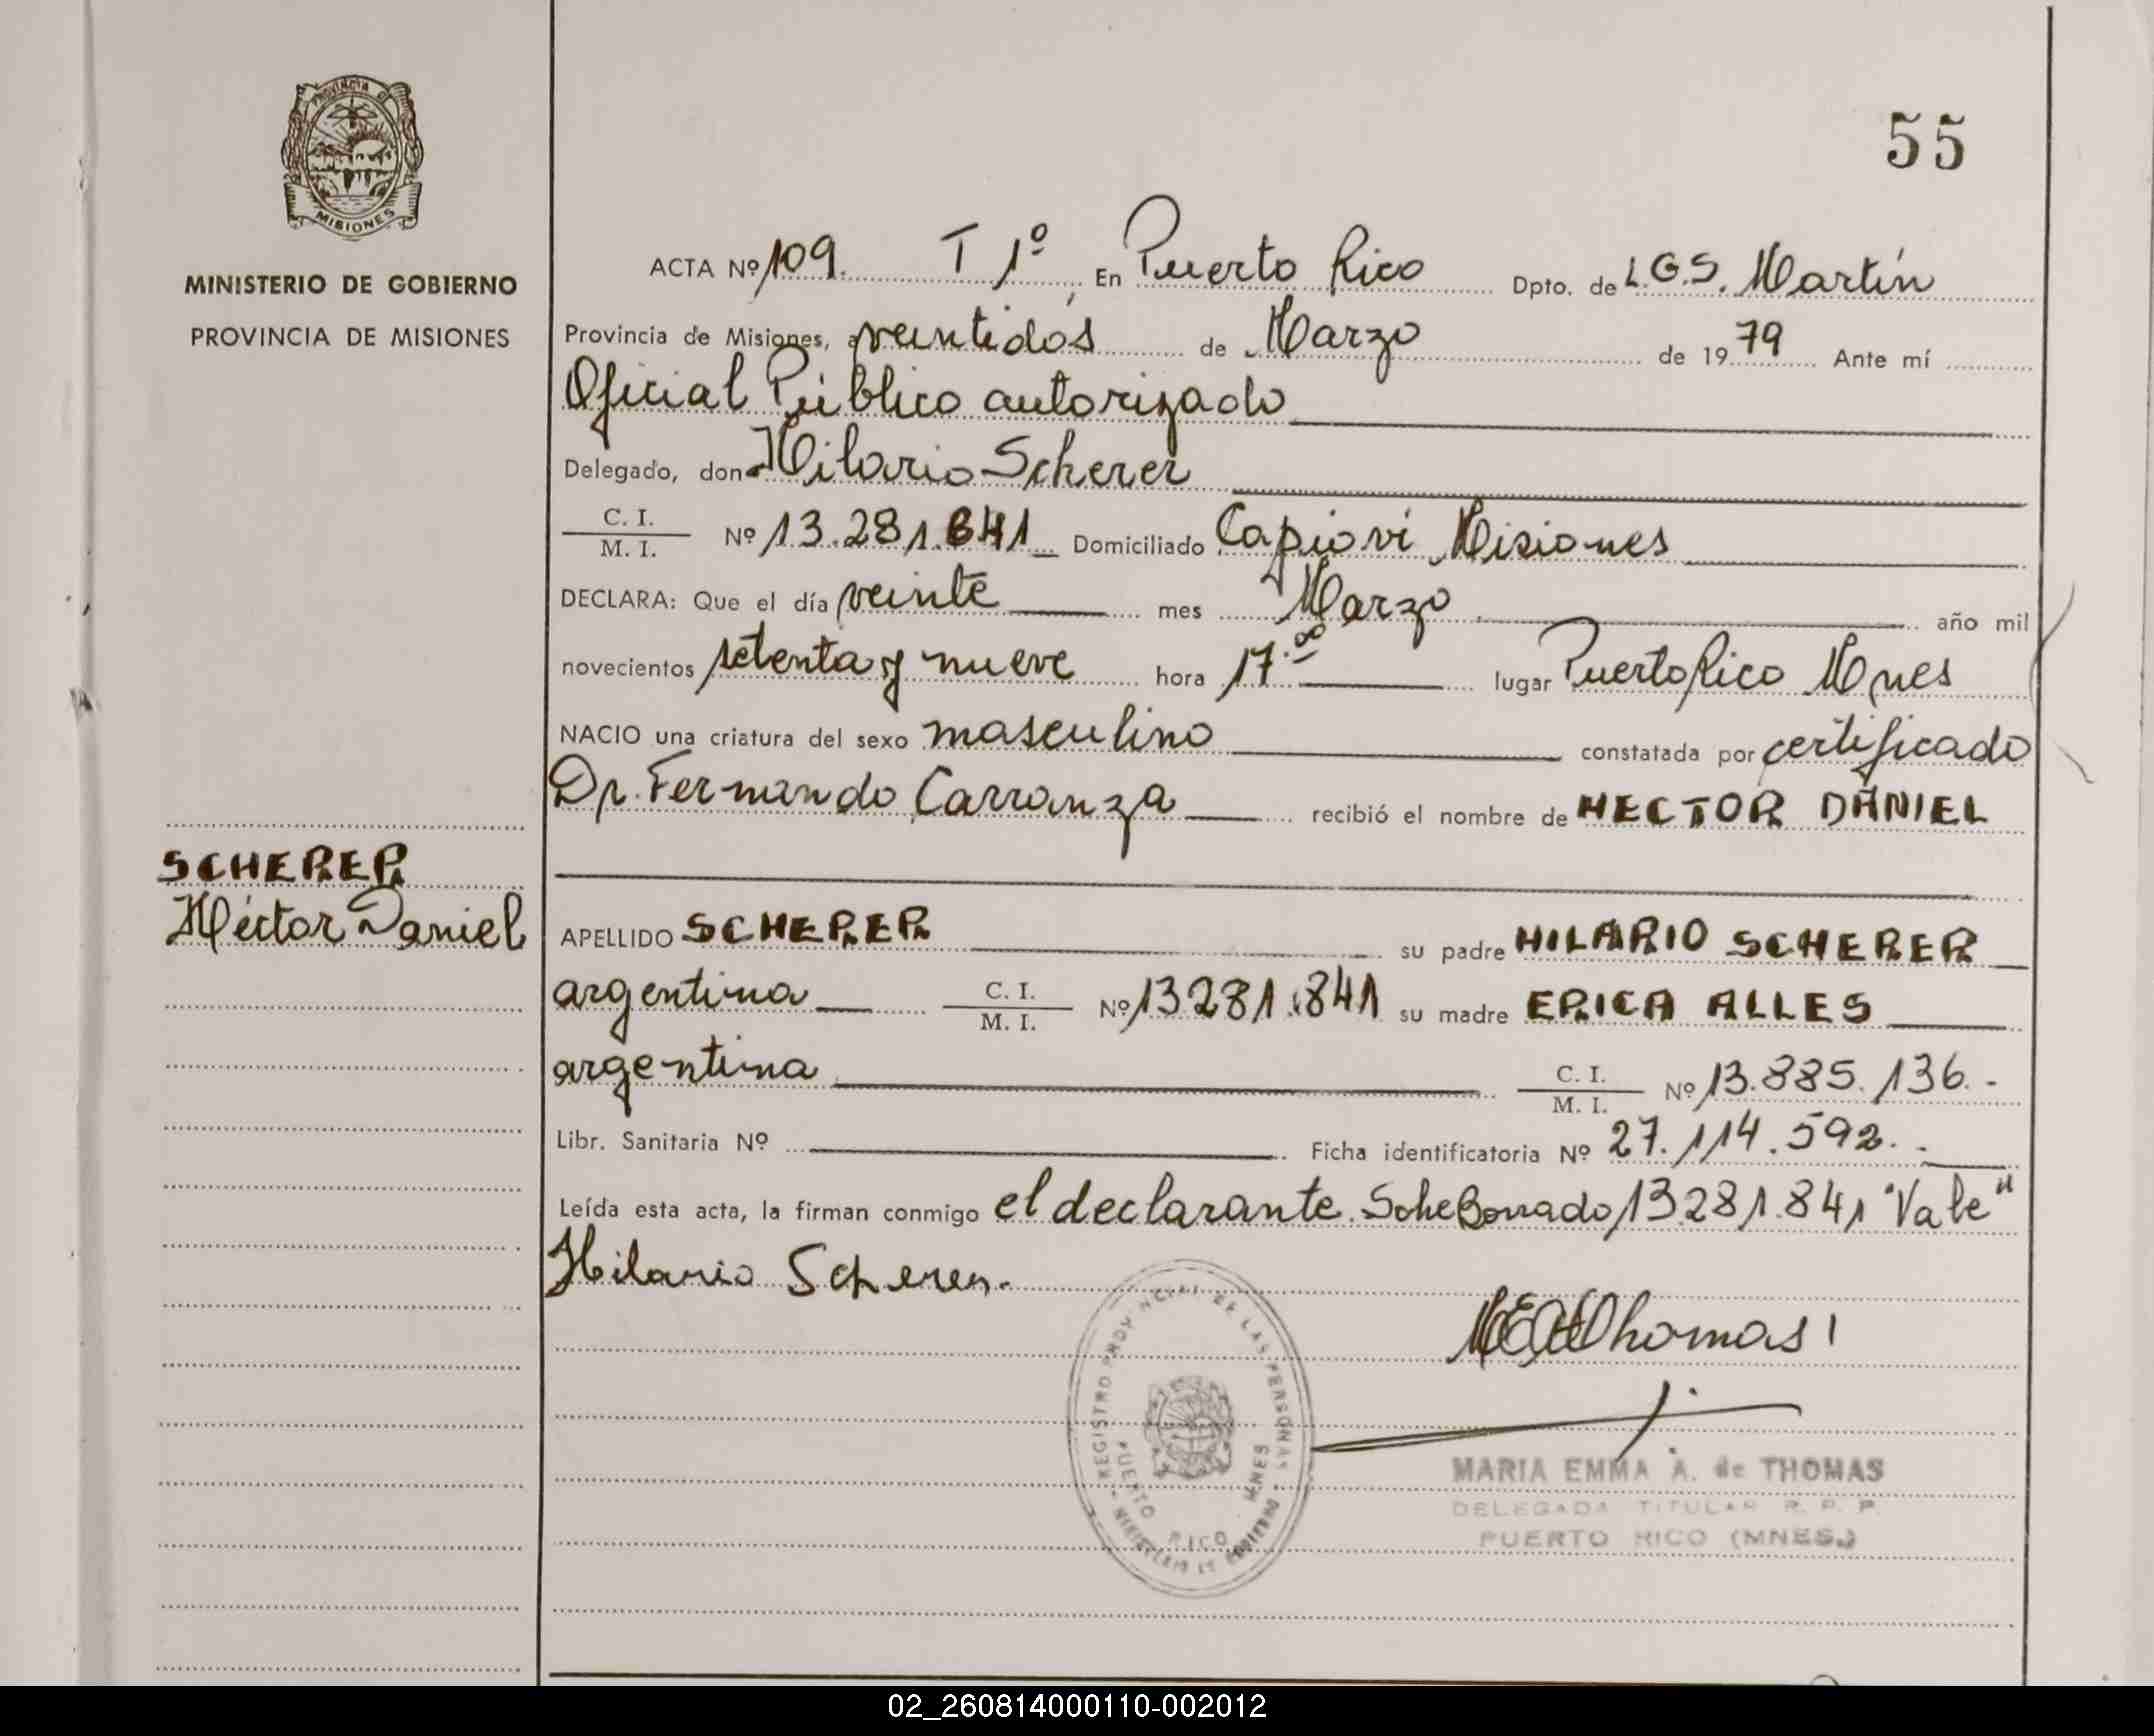 PROVINCIA DE
MISIONES
MINISTERIO DE GOBIERNO
PROVINCIA DE MISIONES
SCHERER
Héctor Daniel
55
ACTA Nº 109. T 1º, En Puerto Rico Dpto. de L.G.S. Martín
Provincia de Misiones, a veintidós de Marzo de 1979 Ante mí
Oficial Público autorizado
Delegado, don Hilario Scherer
C. I.
M. I. Nº 13.281.841 Domiciliado Capioví Misiones
DECLARA: Que el día veinte mes Marzo año mil
novecientos setenta y nueve hora 17.00 lugar Puerto Rico Mnes
NACIO una criatura del sexo masculino constatada por certificado
Dr. Fernando Carranza recibió el nombre de HECTOR DANIEL
APELLIDO SCHERER su padre HILARIO SCHERER
argentina C. I. M. I. Nº 13281.841 su madre ERICA ALLES
argentina C. I. M. I. Nº 13.885.136.-
Libr. Sanitaria Nº Ficha identificatoria Nº 27.114.592.-
Leída esta acta, la firman conmigo el declarante. Sobre Borrado, 13.281.841 "Vale"
Hilario Scherer.
REGISTRO PROVINCIAL DE LAS PERSONAS
PUERTO RICO MNES
MINISTERIO DE GOBIERNO
MEAdThomas
MARIA EMMA A. de THOMAS
DELEGADA TITULAR R. P. P.
PUERTO RICO (MNES.)
02_260814000110-002012